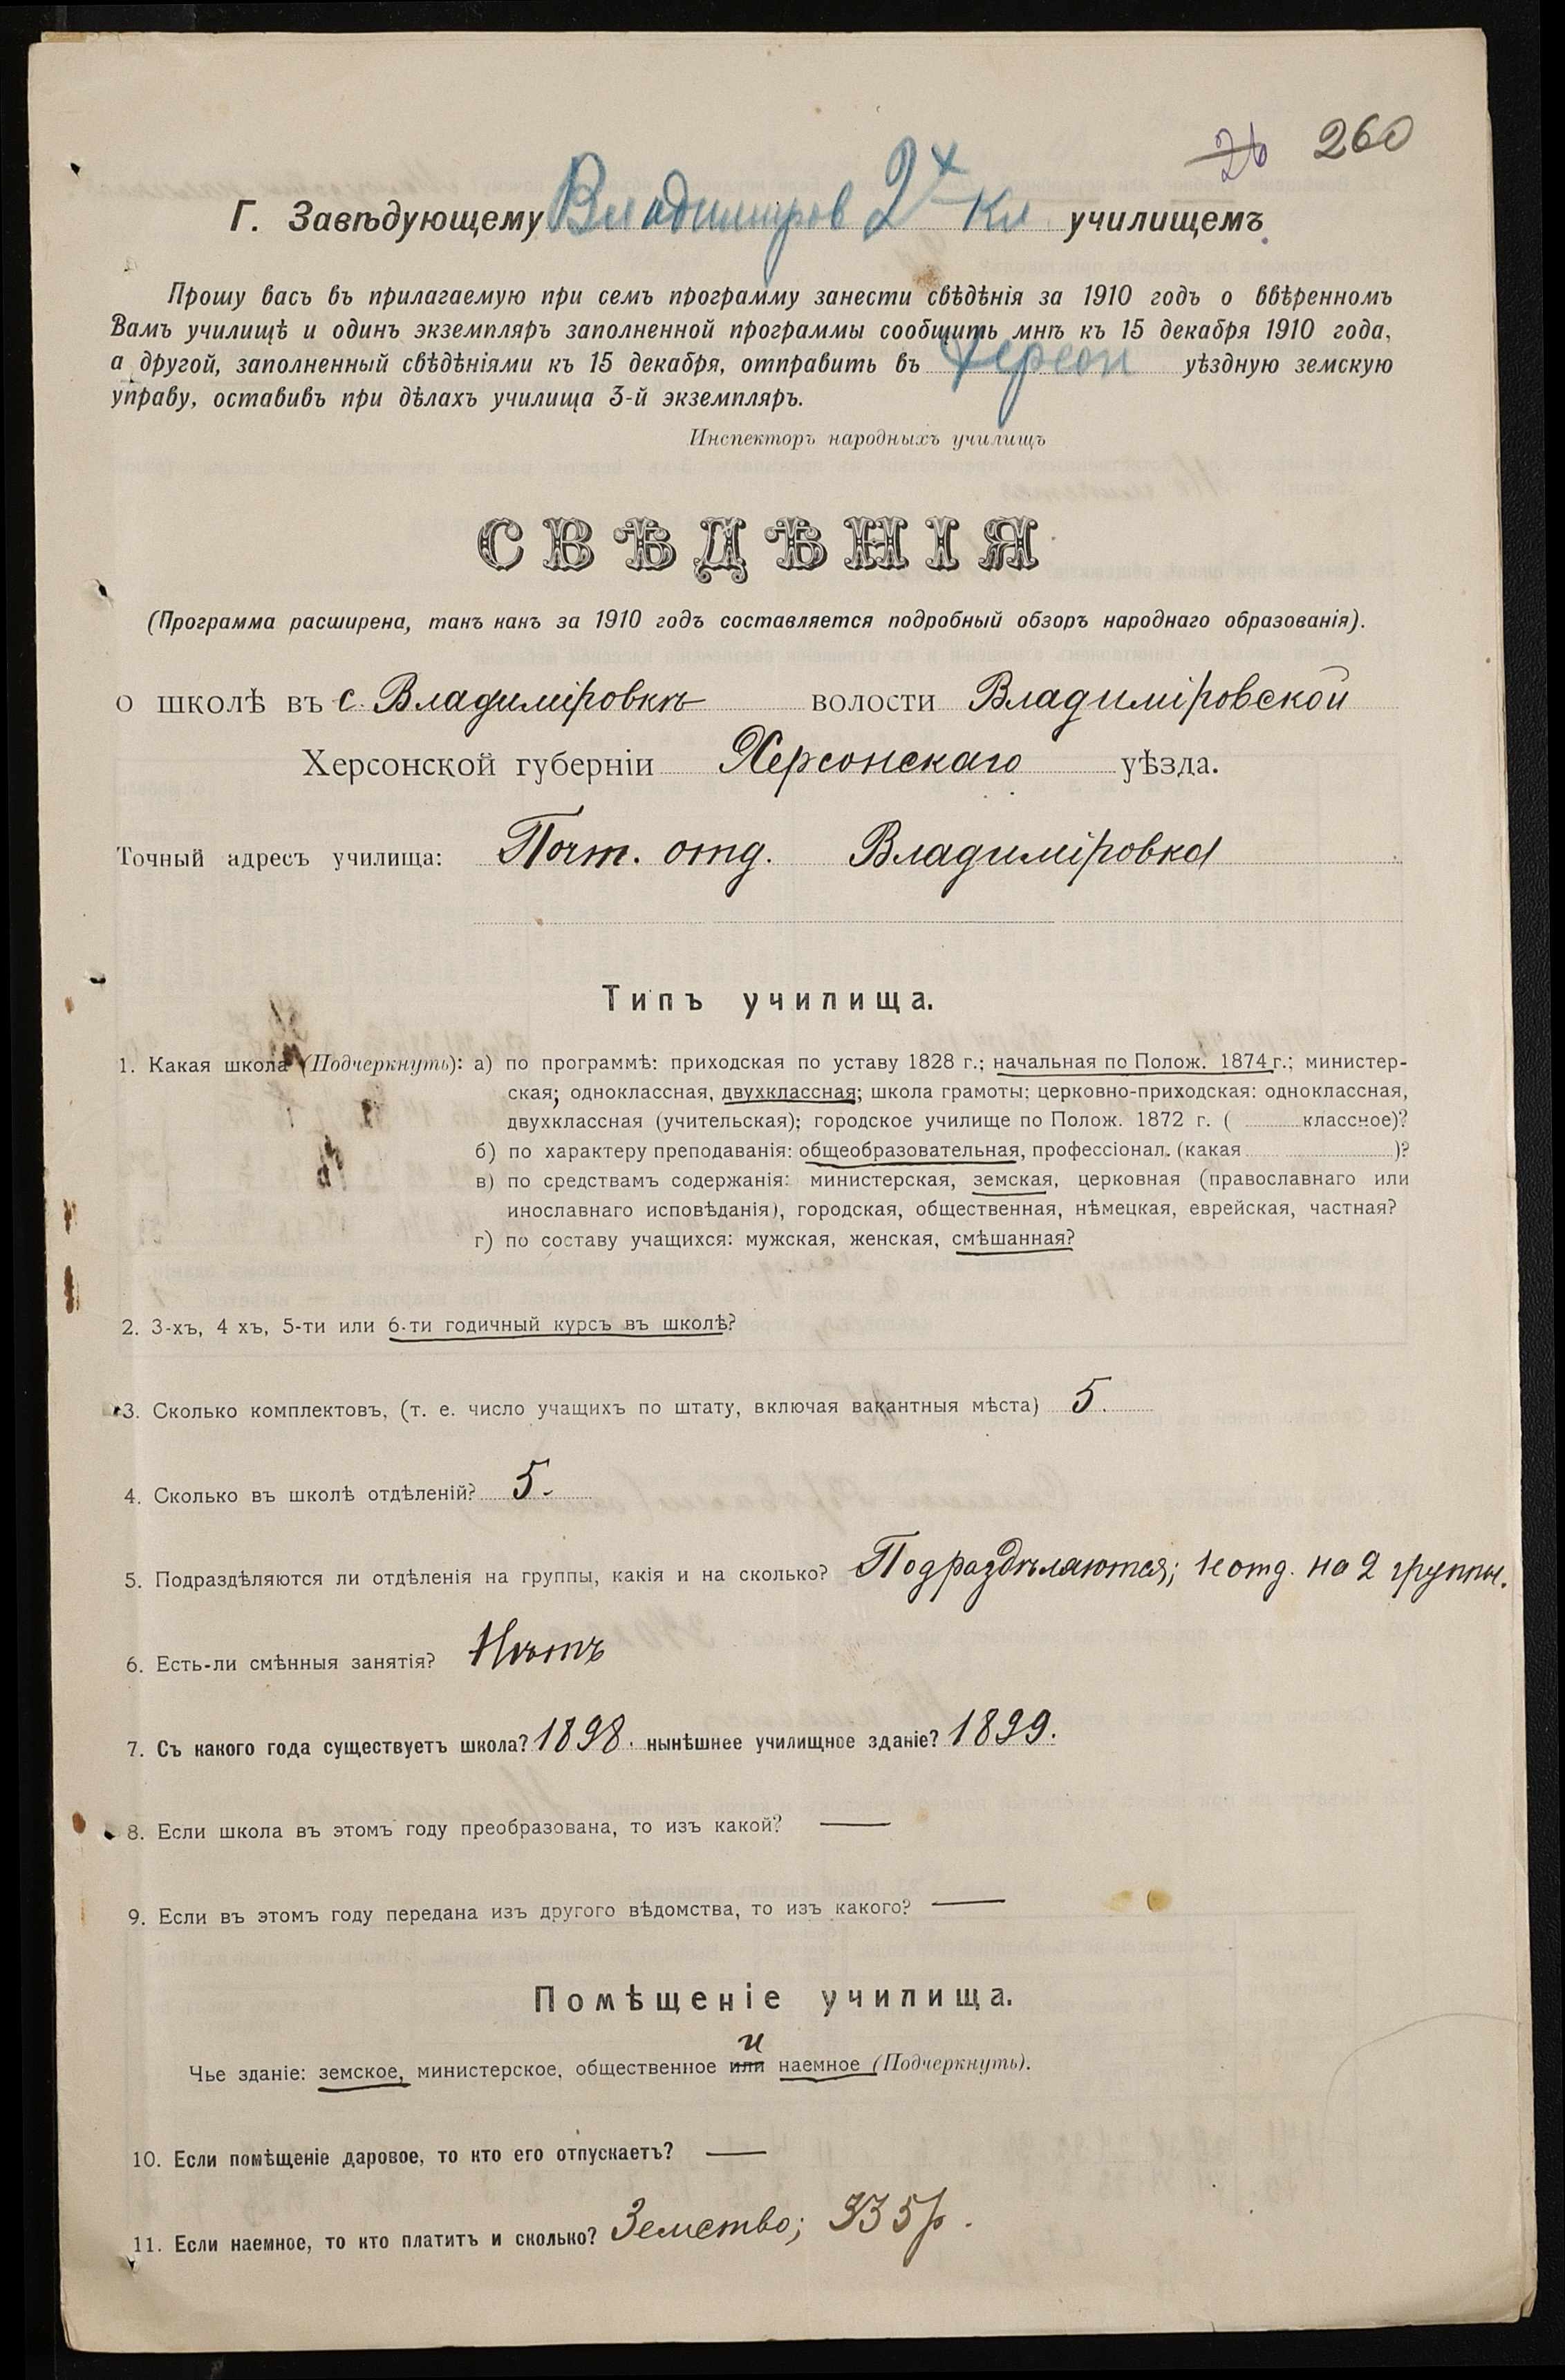 26 260
Г. Завѣдующему Владимиров 2х кл училищемъ
Прошу васъ въ прилагаемую при семъ программу занести свѣдѣнія за 1910 годъ о ввѣренномъ
Вамъ училищѣ и одинъ экземпляръ заполненной программы сообщить мнѣ къ 15 декабря 1910 года,
а другой, заполненный свѣдѣніями къ 15 декабря, отправить въ Херсон уѣздную земскую
управу, оставивъ при дѣлахъ училища 3-й экземпляръ.
Инспекторъ народныхъ училищъ
СВѢДѢНІЯ
(Программа расширена, такъ какъ за 1910 годъ составляется подробный обзоръ народнаго образованія).
о школѣ въ с. Владиміровкѣ волости Владиміровской
Херсонской губерніи Херсонскаго уѣзда.
Точный адресъ училища: Почт. отд. Владиміровка
Типъ училища.
1. Какая школа (Подчеркнуть): а) по программѣ: приходская по уставу 1828 г.; начальная по Полож. 1874 г.; министер-
ская; одноклассная, двухклассная; школа грамоты; церковно-приходская: одноклассная,
двухклассная (учительская); городское училище по Полож. 1872 г. ( классное)?
б) по характеру преподаванія: общеобразовательная, профессіонал. (какая )?
в) по средствамъ содержанія: министерская, земская, церковная (православнаго или
инославнаго исповѣданія), городская, общественная, нѣмецкая, еврейская, частная?
г) по составу учащихся: мужская, женская, смѣшанная?
2. 3-хъ, 4 хъ, 5-ти или 6-ти годичный курсъ въ школѣ?
3. Сколько комплектовъ, (т. е. число учащихъ по штату, включая вакантныя мѣста) 5.
4. Сколько въ школѣ отдѣленій? 5.
5. Подраздѣляются ли отдѣленія на группы, какія и на сколько? Подраздѣляются; 1е отд. на 2 группы.
6. Есть-ли смѣнныя занятія? Нѣтъ
7. Съ какого года существуетъ школа? 1898. нынѣшнее училищное зданіе? 1899.
8. Если школа въ этомъ году преобразована, то изъ какой? —
9. Если въ этомъ году передана изъ другого вѣдомства, то изъ какого? —
Помѣщеніе училища.
и
Чье зданіе: земское, министерское, общественное или наемное (Подчеркнуть).
10. Если помѣщеніе даровое, то кто его отпускаетъ? —
11. Если наемное, то кто платитъ и сколько? Земство; 335 р.